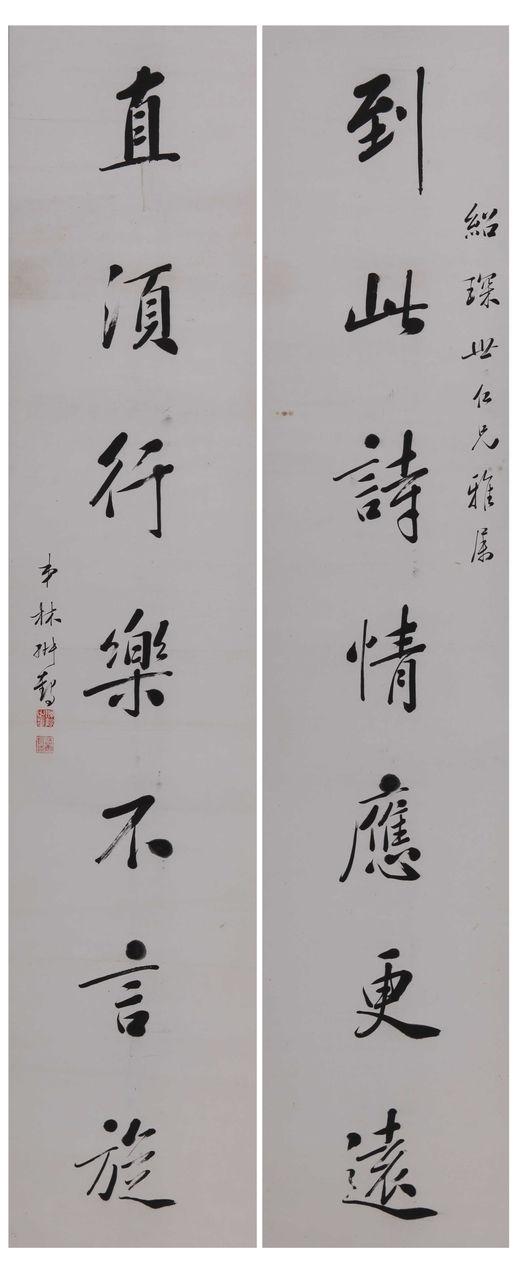 紹琛世仁兄雅屬
到此詩情應更遠
直須行樂不言旋
弟林翀鶴